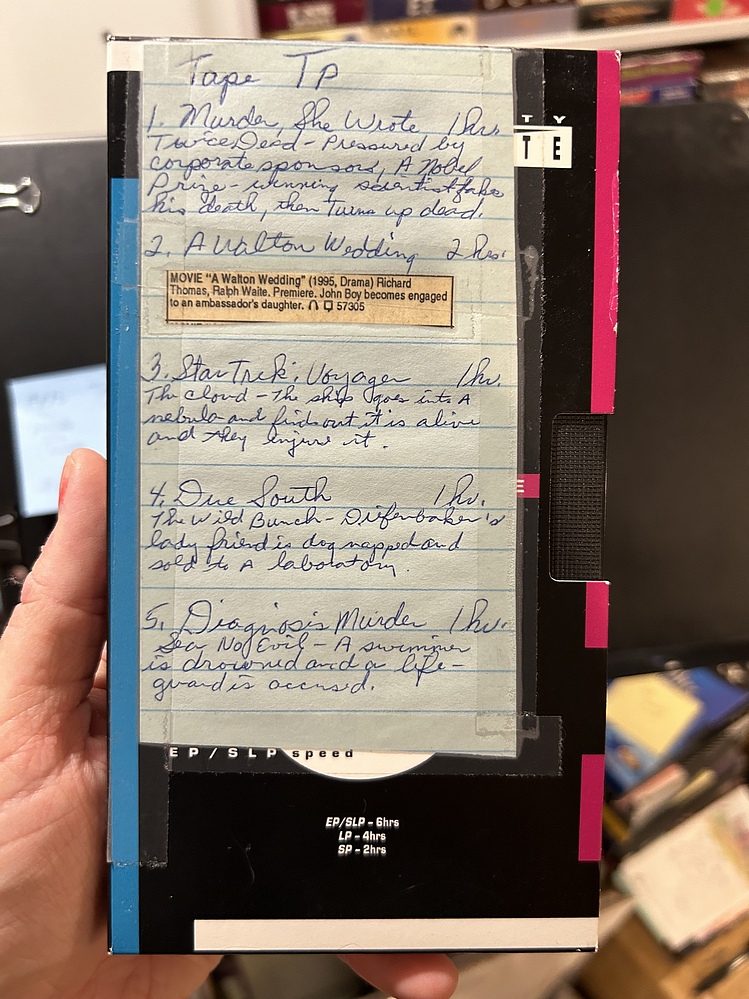 Tape TP
1. Murder, She Wrote 1hr.
Twice Dead - Pressured by
corporate sponsors, A Nobel
Prize - winning scientist fakes
his death, then Turns up dead.
2. A Walton Wedding 2 hrs.
MOVIE "A Walton Wedding" (1995, Drama) Richard
Thomas, Ralph Waite. Premiere. John Boy becomes engaged
to an ambassador's daughter. 57305
3. Star Trek: Voyager 1hr.
The Cloud - The ship goes into A
nebula and finds out it is alive
and they injure it.
4. Due South 1hr.
The Wild Bunch - Diefenbaker's
lady friend is dog napped and
sold to A laboratory.
5. Diagnosis Murder 1hr.
Sea No Evil - A swimmer
is drowned and a life-
guard is accused.
TY
TE
E
EP/SLP speed
EP/SLP - 6hrs
LP - 4hrs
SP - 2hrs